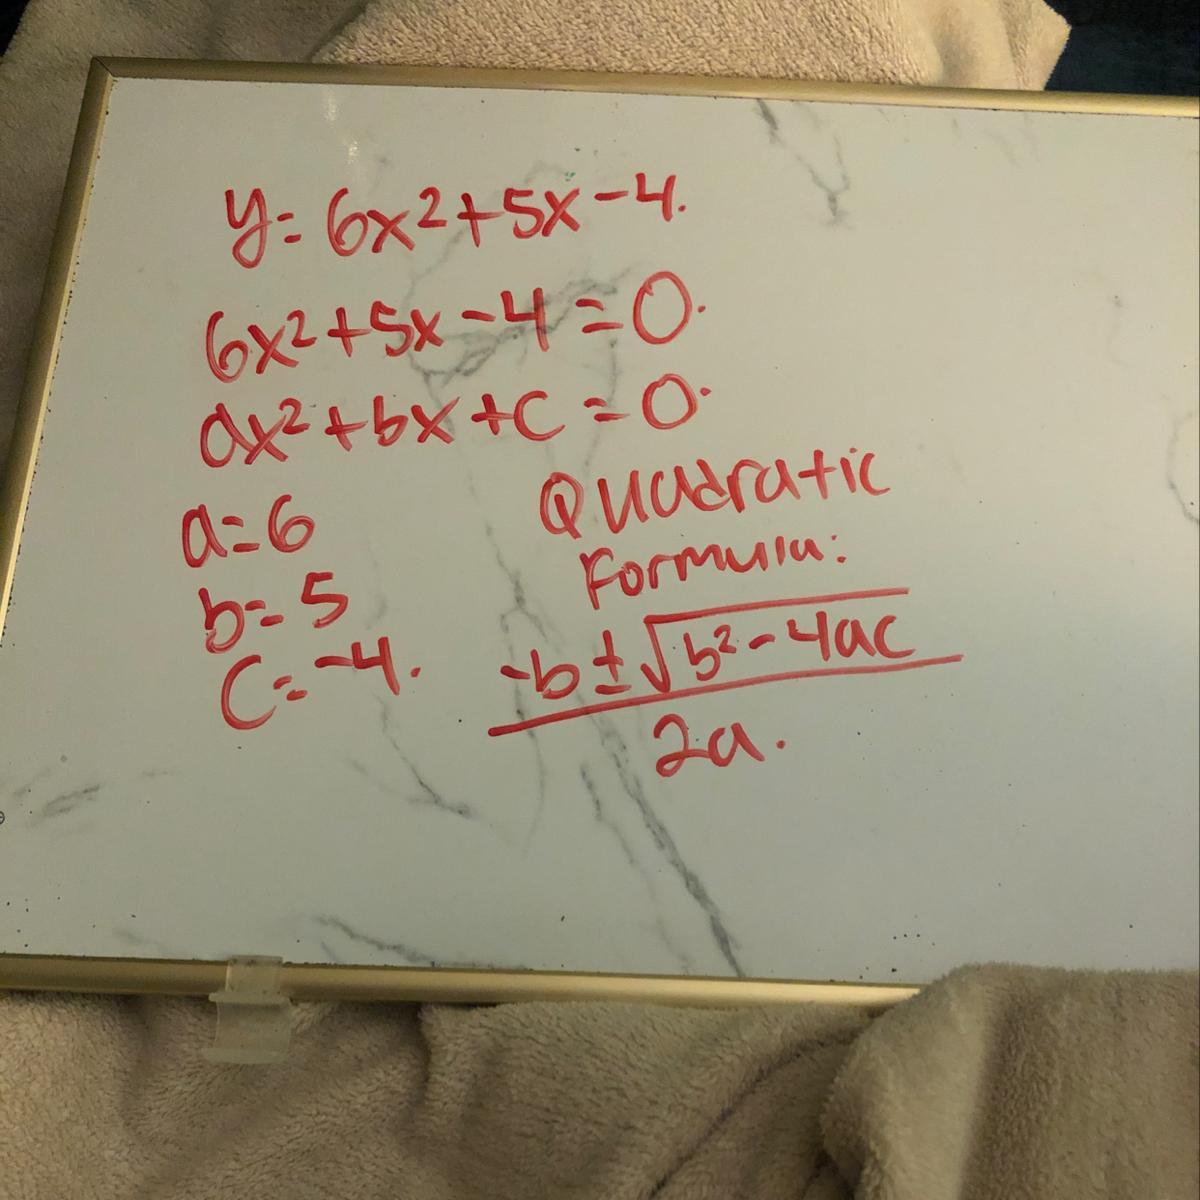 y= 6x²+5x-4.
6x²+5x-4=0.
ax²+bx+c=0.
a=6
b=5
c=-4.
Quadratic
Formula:
-b±√b²-4ac
2a.